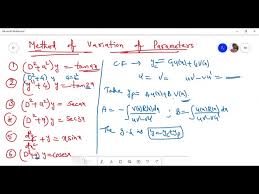 Method of Variation of Parameters
① (D²+a²)y = tanax
② (y''+4)y = tan2x
③ (D²+a²)y = Secax
④ (D²+4)y = Secx
⑤ d²y/dx² + y = xsinx
⑥ (D²+1)y = cosecx
C.F → yc = C₁u(x) + C₂v(x)
u = v = uv'-vu' =
Take yp = A u(x) + B v(x)
A = -∫ v(x)R(x)dx / uv'-vu'
B = ∫ u(x)R(x)dx / uv'-vu'
The g.s is y = yc+yp